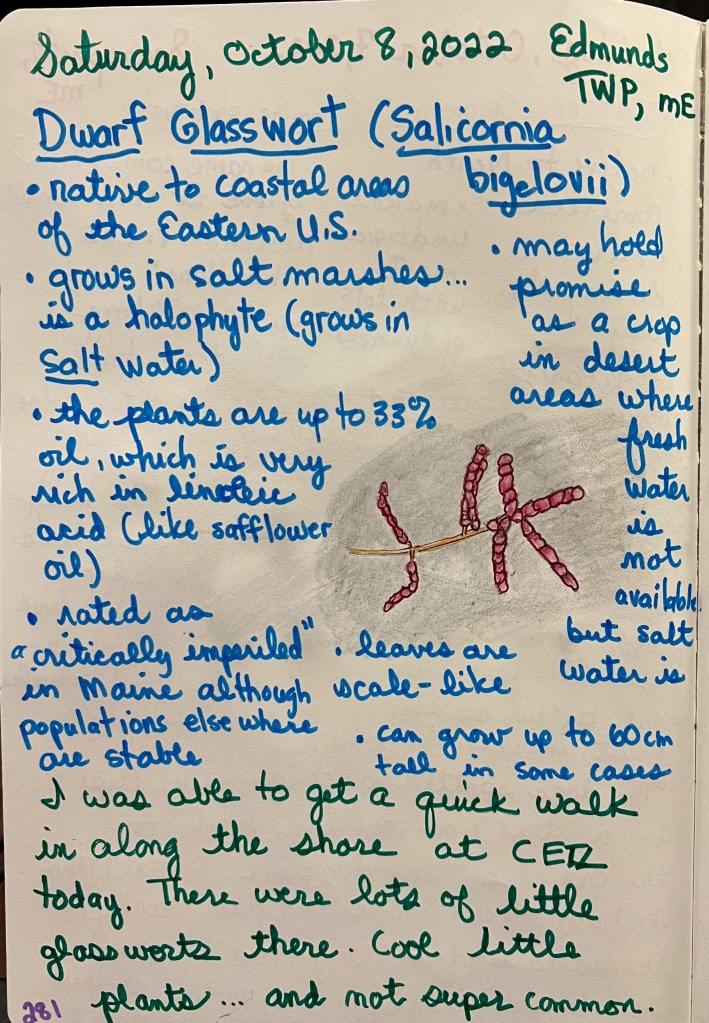 Saturday, October 8, 2022
Edmunds
TWP, ME
Dwarf Glasswort (Salicornia
bigelovii)
• native to coastal areas
of the Eastern U.S.
• grows in salt marshes...
is a halophyte (grows in
salt water)
• the plants are up to 33%
oil, which is very
rich in linoleic
acid (like safflower
oil)
• rated as
"critically imperiled"
in Maine although
populations elsewhere
are stable
• may hold
promise
as a crop
in desert
areas where
fresh
water
is
not
available
but salt
water is
• leaves are
scale-like
• can grow up to 60cm
tall in some cases
I was able to get a quick walk
in along the shore at
today. There were lots of little
glassworts there. Cool little
plants... and not super common.
281